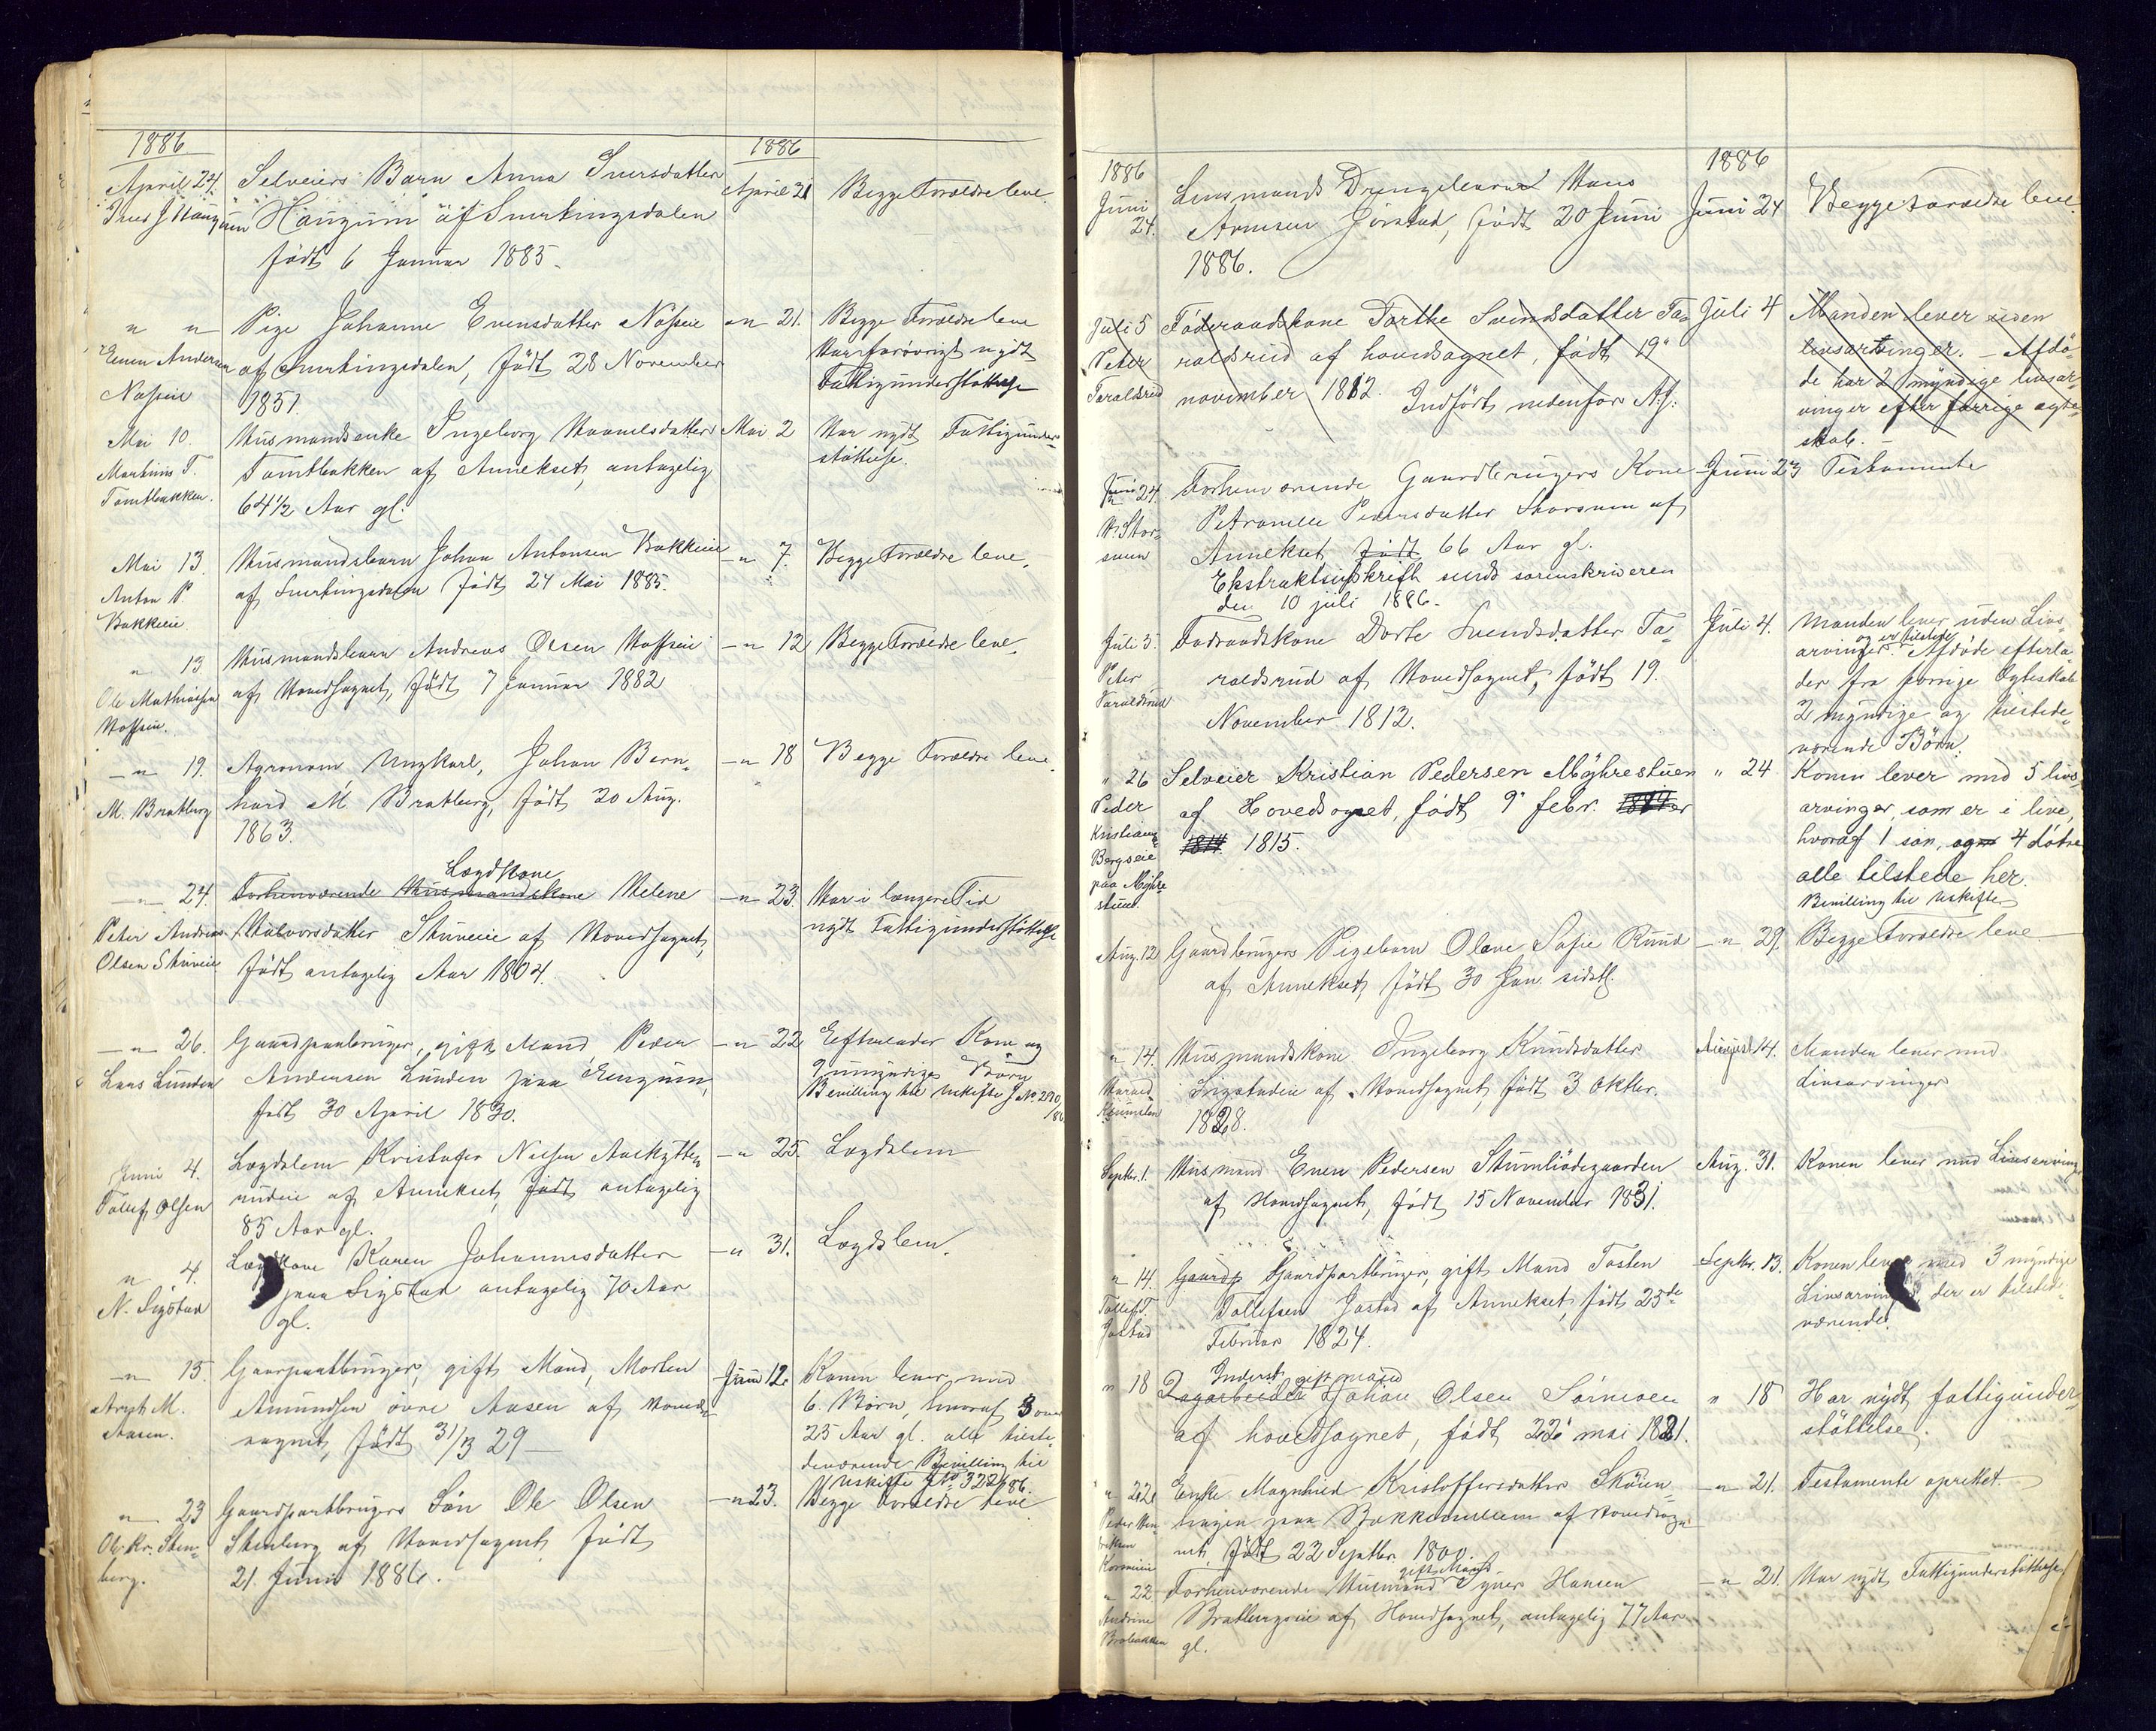 1886
April 24.
Iver J Haugum
Selveiers Barn Anna Iversdatter
Haugum af Snertingsdalen
født 6 Januar 1885.
1886
April 21
Begge Forældre leve.
" "
Even Andersen
Nøsseie
Pige Johanne Evensdatter Nøsseie
af Snertingsdalen, født 28 November
1851.
" 21.
Begge Forældre leve
Har forøvrigt nydt
Fattigunderstøttelse
Mai 10.
Martinus T.
Tømtbakken.
Husmandsenke Ingeborg
Tømtbakken af Annekset, antagelig
64 1/2 Aar gl.
Mai 2
Har nydt Fattigunder-
støttelse.
Mai 13.
Anton P.
Bakkeie
Husmandsbarn Johan Antonsen Bakkeie
af Snertingsdalen født 24 Mai 1885.
" 7.
Begge Forældre leve.
" 13
Ole Mathiassen
Husmandsbarn Andreas Olsen
af Hovedsognet, født 7 Januar 1882
" 12
Begge Forældre leve.
" 19.
M. Bratberg
Agronom Ungkarl, Johan Bern-
hard M. Bratberg, født 20 Aug.
1863.
" 18
Begge Forældre leve.
" 24.
Peter Andreas
Olsen Stuveie
Lægdkone
Forhenværende Husmandskone Helene
Halvorsdatter Stuveie af Hovedsognet,
født antagelig Aar 1804.
" 23.
Har i længere Tid
nydt Fattigunderstøttelse
" 26.
Lars Lunden
Gaardpartbruger, gift Mand Peder
Andersen Lunden paa
født 30 April 1830.
" 22
Efterlader Kone og
9 umyndige Børn
Bevilling til Uskifte J No 270/86
Juni 4.
Tollef Olsen
Lægdslem Kristofer Nielsen
af Annekset, født antagelig
85 Aar gl.
" 25.
Lægdslem
" 4.
N. Sigstad
Lægdkone Karen Johannesdatter
paa Sigstad antagelig 70 Aar
gl.
" 31.
Lægdslem.
" 15.
M.
Aasen.
Gaarpartbruger, gift Mand, Morten
Amundsen øvre Aasen af Hoved-
sognet, født 31/3 29
Juni 12.
Konen lever med
6. Børn, hvoraf 3 over
25 Aar gl. alle tilste-
deværende Bevilling til
Uskifte J No 322/86.
" 23
Ole Kr. Sten-
berg.
Gaardpartbrugers Søn Ole Olsen
Stenberg af Hovedsognet født
21. Juni 1886.
" 23.
Begge Forældre leve
1886
Juni
24.
Lensmands Drengebarn Hans
Arnesen Jørstad, født 20 Juni
1886.
1886
Juni 24
Begge Forældre leve.
Juli 5
Peter
Taraldsrud
Føderaadskone Dorthe Svendsdatter Ta-
raldsrud af hovedsognet, født 19"
november 1812. Indført nedenfor
Juli 4
Manden lever uden
livsarvinger. - Afdø-
de har 2 myndige livsar-
vinger efter forrige ægte-
skab.
Juni 24.
N. Stor-
suen
Forhenværende Gaardbrugers Kone
Petronelle Pedersdatter Storsuen af
Annekset født 66 Aar gl.
Ekstraktsudskrift sendt sorenskriveren
den 10 juli 1886.
Juni 23
Testamente
Juli 5.
Peter
Taraldsrud
Føderaadskone Dorte Svendsdatter Ta-
raldsrud af Hovedsognet, født 19.
November 1812.
Juli 4.
Manden lever uden Livs-
og er tilstede
arvinger. Afdøde efterla-
der fra forrige Ægteskab
2 myndige og tilstede-
værende Børn.
" 26
Peder
Kristians
Bergseie
paa Myhre
stuen
Selveier Kristian Pedersen Myhrestuen
af Hovedsognet, født 9" febr.
1814. 1815.
" 24
Konen lever med 5 livs-
arvinger, som er i live,
hvoraf 1 søn, og 4 døtre
alle tilstede her.
Bevilling til Uskifte
Aug. 12
Gaardbrugers Pigebarn Olave Sofie Ruud
af Annekset, født 30 Jan. sidstl.
" 29.
Begge Forældre leve
" 14.
Husmandskone Ingeborg Knudsdatter
af Hovedsognet, født 3 Oktbr.
1828.
August 4.
Manden lever med
Livsarvinger
Septbr. 1.
Husmand Even Pedersen Stumliødegaarden
af Hovedsognet, født 15 November 1831.
Aug. 31.
Konen lever med Livsarvinger
" 14.
Tollef T.
Jøstad
Gaardp Gaardpartbruger, gift Mand Tosten
Tollefsen Jøstad af Annekset, født 25de
Februar 1824.
Septbr. 13.
Konen lever med 3 myndige
Livsarvinger der er tilsted-
værende.
" 18
Inderst, gift mand
Dagarbeider Johan Olsen Sørmoen
af hovedsognet, født 22" mai 1821.
" 18
Har nydt fattigunder-
støttelse.
" 22
Peder Hen-
riksen
Enke Magnhild Kristoffersdatter
paa Bakkemellem af Hovedsog-
net, født 22 Septbr. 1800.
" 21.
Testamente oprettet.
" 22
Andrine
Brobakken
gift Mand
Forhenværende Husmand Syver Hansen
Bratbergseie af Hovedsognet, antagelig 77 Aar
gl.
" 21.
Har nydt Fattigunderstøttelse